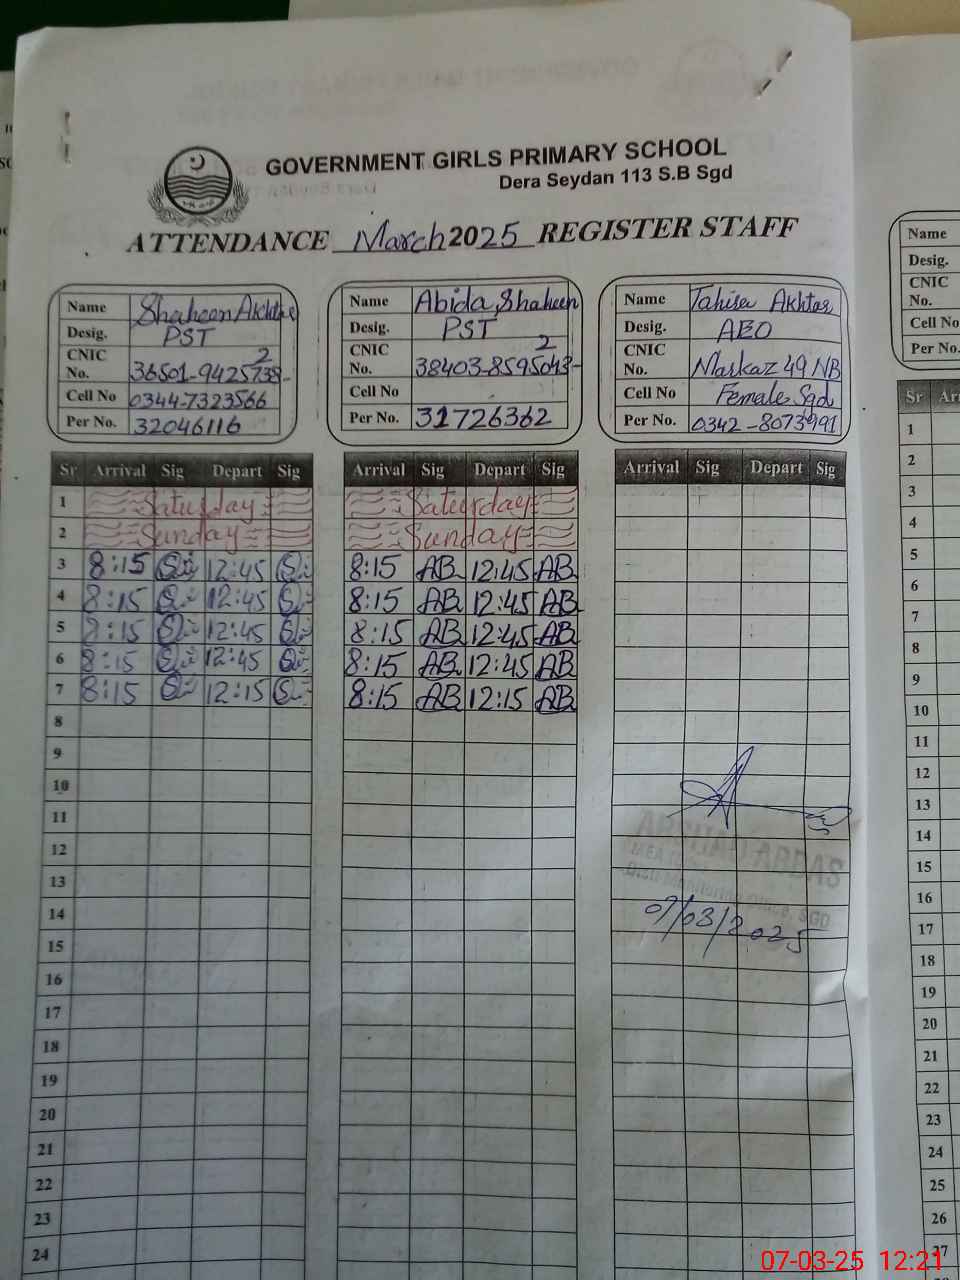 GOVERNMENT GIRLS PRIMARY SCHOOL
Dera Seydan 113 S.B Sgd
ATTENDANCE March 2025 REGISTER STAFF
Name Shaheen Akhtar
Desig. PST
CNIC No. 36501-9425738-2
Cell No 0344-7323566
Per No. 32046116
Name Abida Shaheen
Desig. PST
CNIC No. 38403-8595043-2
Cell No
Per No. 31726362
Name Tahira Akhtar
Desig. AEO
CNIC No. Markaz 49 NB
Cell No Female Sgd
Per No. 0342-8073991
Sr Arrival Sig Depart Sig Arrival Sig Depart Sig Arrival Sig Depart Sig
1 Saturday Saturday
2 Sunday Sunday
3 8:15 12:45 8:15 AB 12:45 AB
4 8:15 12:45 8:15 AB 12:45 AB
5 8:15 12:45 8:15 AB 12:45 AB
6 8:15 12:45 8:15 AB 12:45 AB
7 8:15 12:15 8:15 AB 12:15 AB
8
9
10
11
12
13
14
15
16
17
18
19
20
21
22
23
24
ARSHAD ABBAS
SGD
07/03/2025
Name
Desig.
CNIC
No.
Cell No
Per No.
Sr
1
2
3
4
5
6
7
8
9
10
11
12
13
14
15
16
17
18
19
20
21
22
23
24
25
26
27
07-03-25 12:21